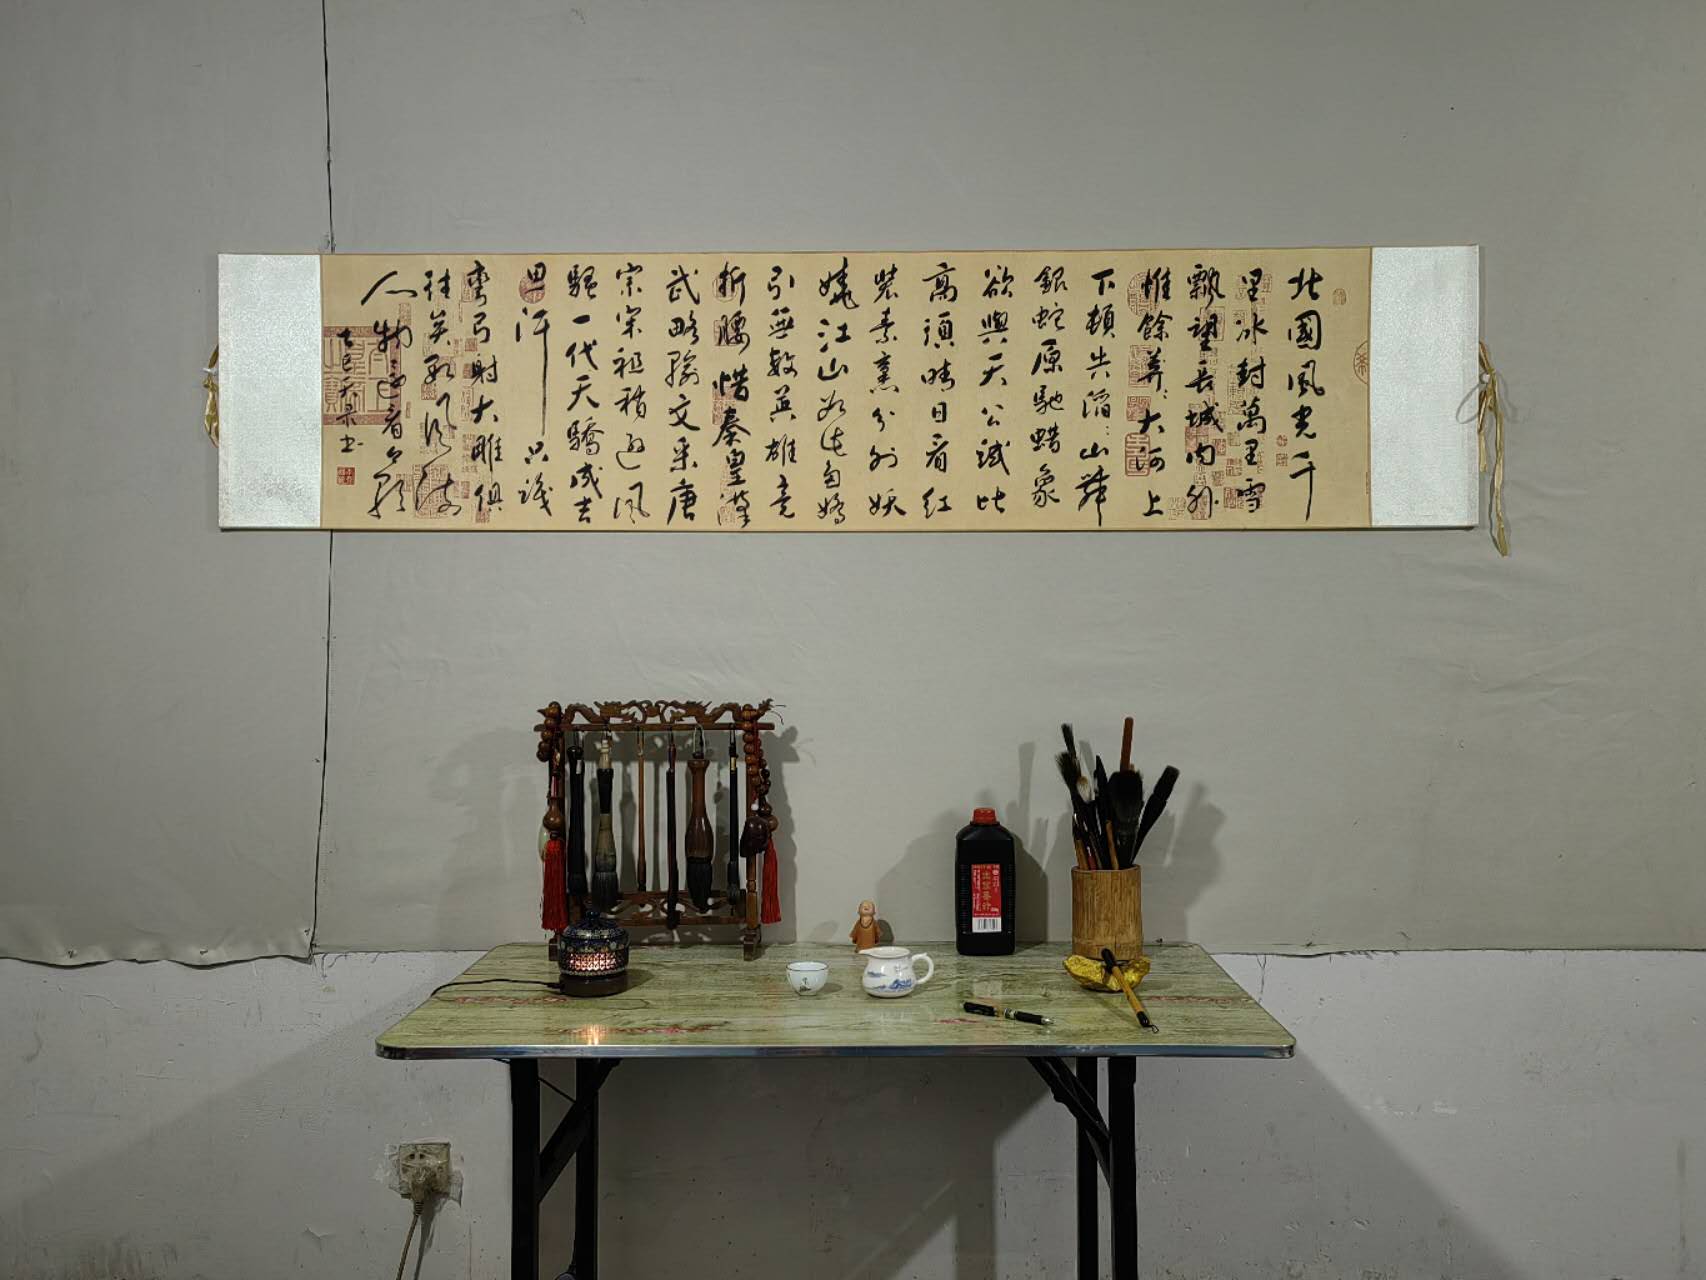 北國風光千
里冰封萬里雪
飄望長城内外
惟餘莽〻大河上
下頓失滔〻山舞
銀蛇原馳蜡象
欲與天公試比
高須晴日看紅
裝素裹分外妖
嬈江山如此多嬌
引無數英雄竞
折腰惜秦皇漢
武略輸文采唐
宗宋祖稍遜風
騷一代天驕成吉
思汗只識
彎弓射大雕俱
往矣數風流
人物還看今朝
乙巳書
墨汁